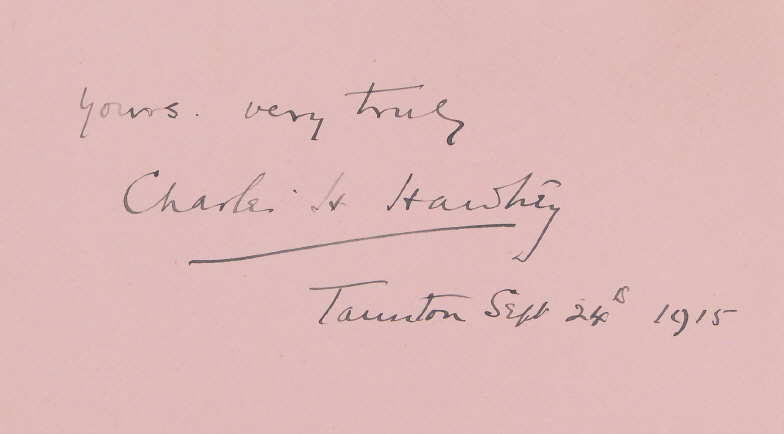 Yours. very truly
Charles H Hawtrey
Taunton Sept 24th 1915